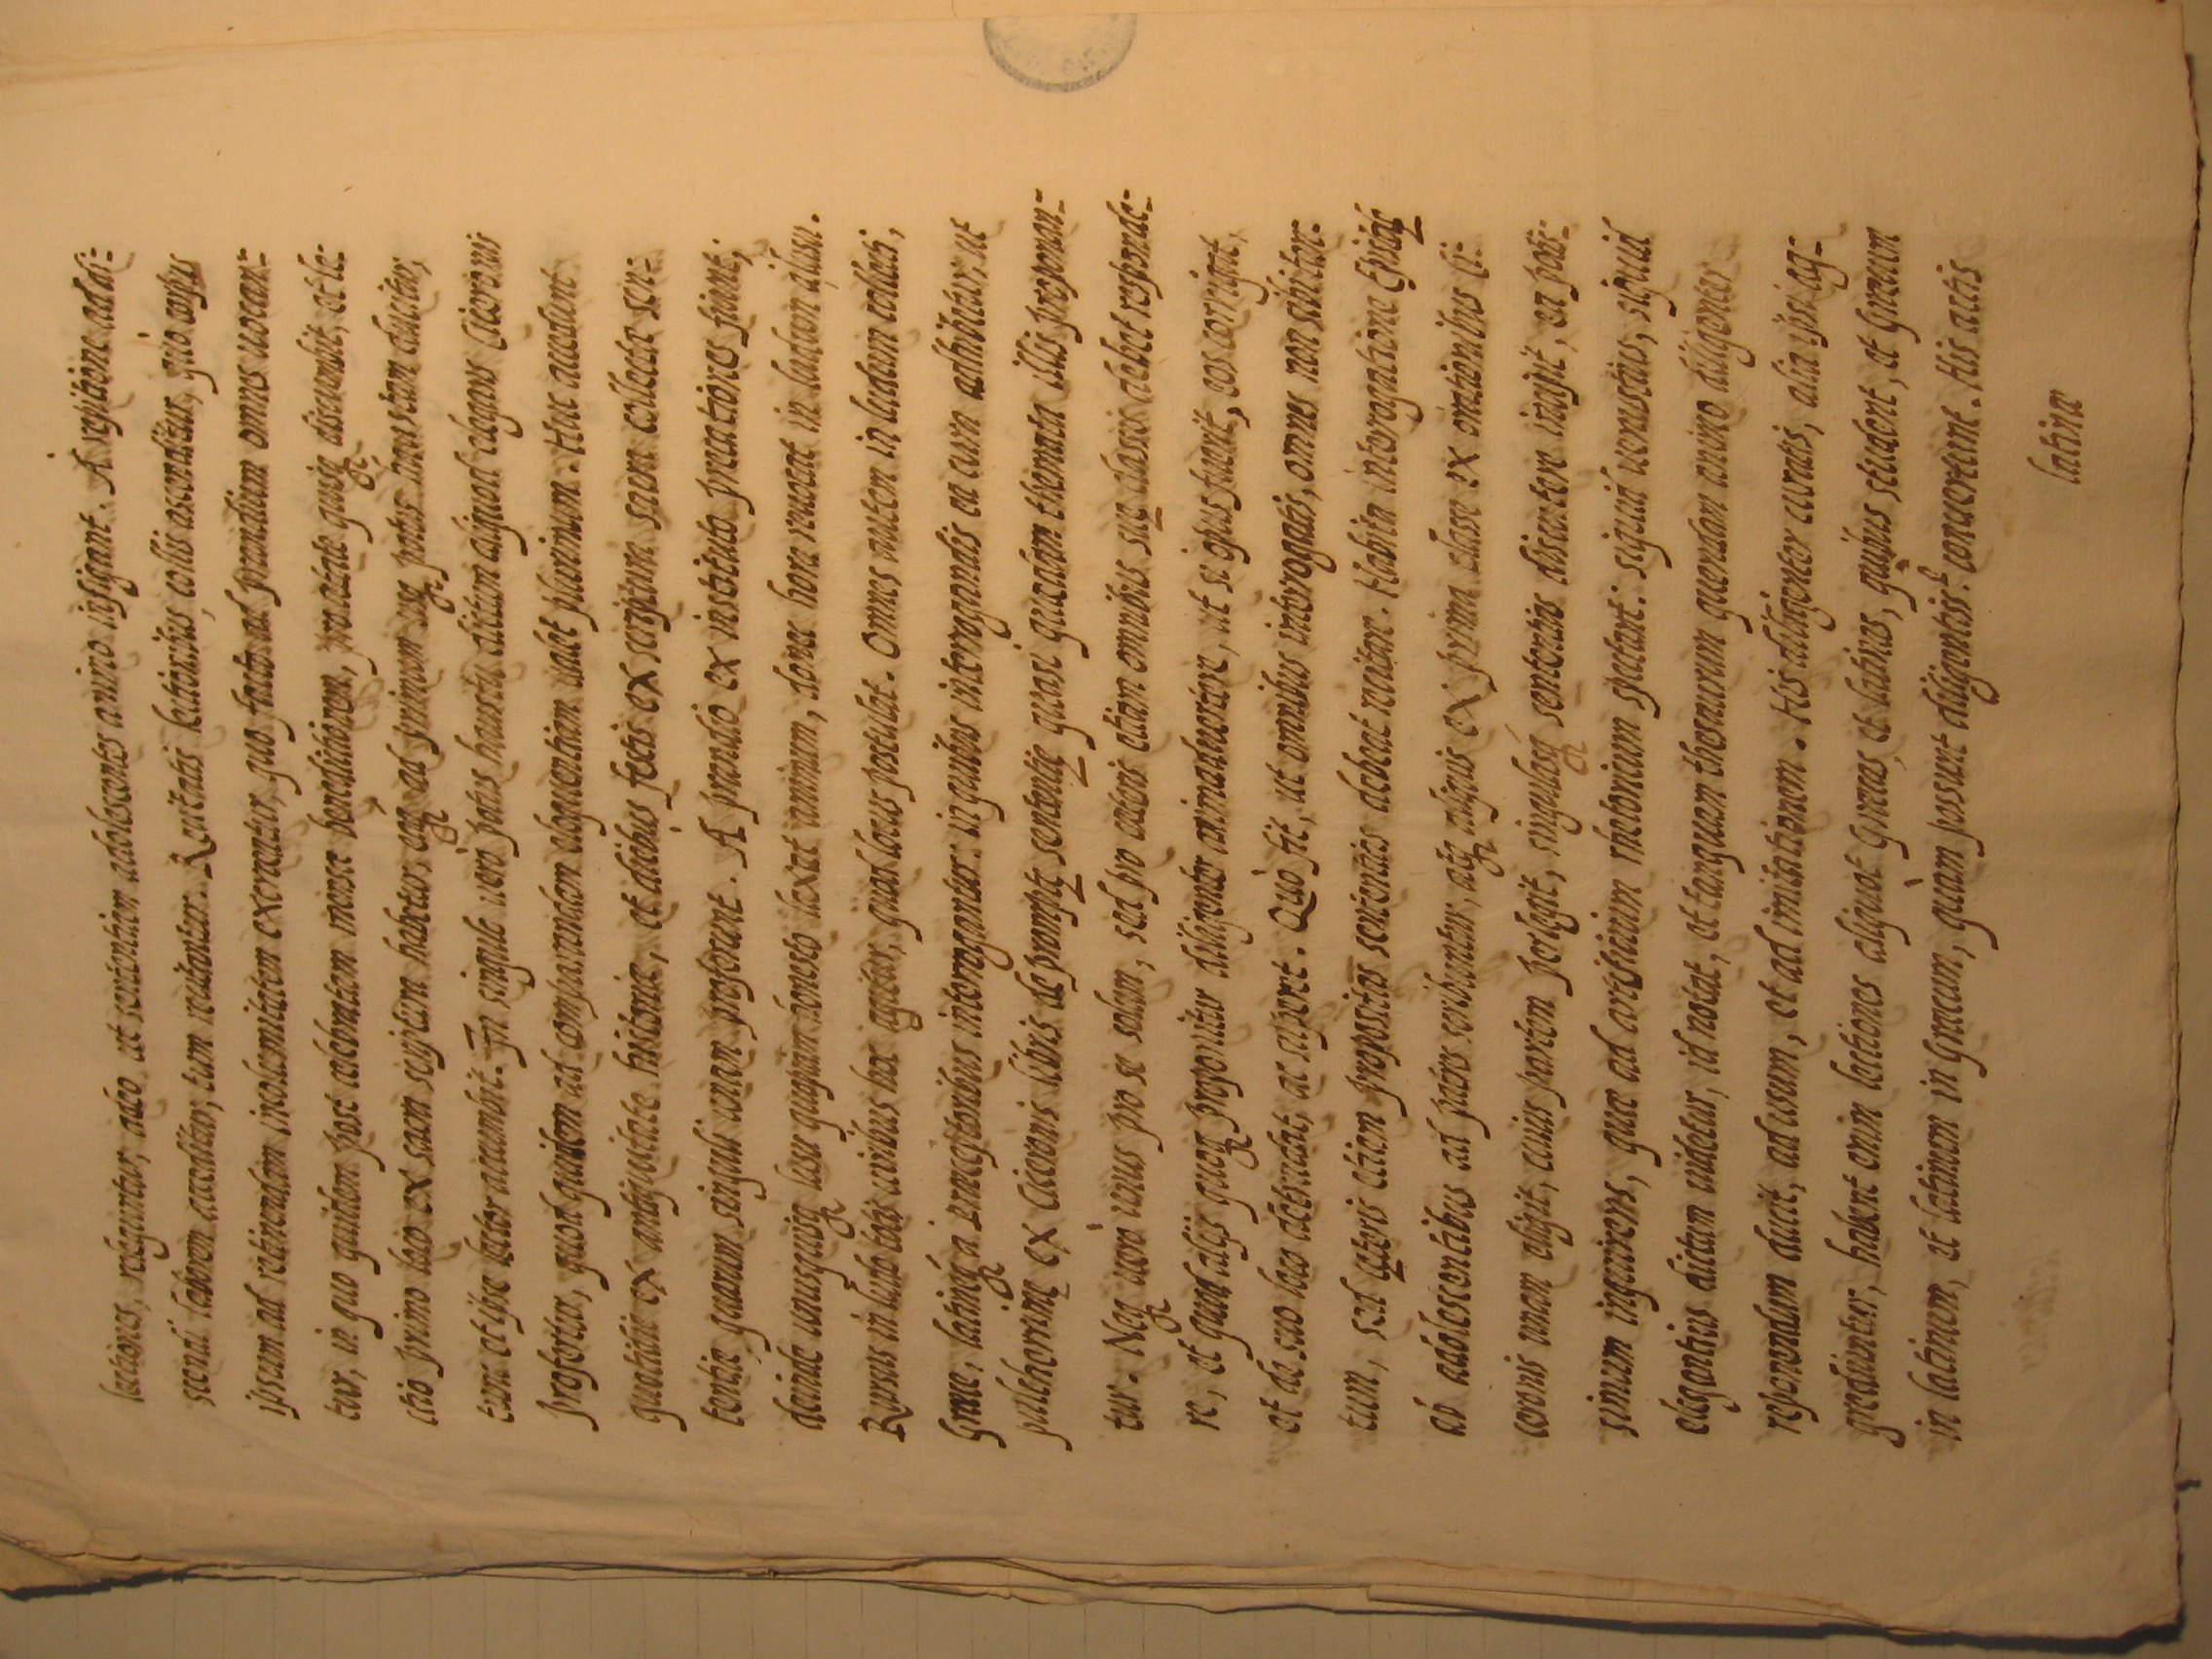 lectiones, releguntur, adeo ut sententiam adolescentes animo infigant. A repetitione ad di-
scendi laborem acceditur, tum recitantur. Recitatis lectionibus, collis ascenditur, quo corpus
ipsum ad retinendam incolumitatem exerceatur, quo facto ad prandium omnes uocan-
tur, in quo quidem post celebratam mensae benedictionem, pro aetate quisq; discumbit, et le-
ctio primo loco ex sacra scriptura habetur, eaq; ad primum usq; potus haustum ducitur,
tunc et ipse lector accumbit. In singulo uero potus haustu dictum aliquod elegans Ciceronis
profertur, quod quidem ad comparandam eloquentiam ualet plurimum. Huc accedunt
quotidie ex antiquitate historiae, et diebus festis ex scriptura sacra collectae sen-
tentiae, quarum singuli unam proferunt. A prandio ex instituto precationes fiunt,
deinde unusquisq; lusu quopiam honesto laxat animum, donec hora reuocet in ludum a lusu.
Rursus in ludo totis uiribus hoc agitur, quod locus postulat. Omnes autem in ludum collecti,
Graece, latineq; a Praeceptoribus interrogantur: in quibus interrogandis ea cura adhibetur, ut
pulcherrimę ex Ciceronis libris depromptę sententię quasi quaedam themata illis proponan-
tur. Neq; uero unus pro se solum, sed pro caeteris etiam omnibus suę classis debet responde-
re, et quid alijs quoq; proponitur diligenter animaduertere, ut si opus fuerit, eos corrigat,
et de suo loco deturbat, ac superet. Quò fit, ut omnibus interrogatis, omnes non solum
tum, sed cęteris etiam propositas sententias debeat recitare. Habita interrogatione Epistolę
ab adolescentibus ad patres scribuntur, atq; aliquis ex prima classe ex orationibus Ci-
ceronis unam eligit, cuius partem perlegit, singulasq; sententias disertem inquit, ea potis-
simum inquirens, quae ad artificium rhetorium spectant: siquid uenustius, siquid
elegantius dictum uidetur, id notat, et tanquam thesaurum quendam animo diligenter
reponendum ducit, ad usum, et ad imitationem. His diligenter curatis, alia ipsi ag-
grediuntur, habent enim lectiones aliquot Graecas, et latinas, quibus student, et Graecum
in latinum, et latinum in Graecum, quàm possunt diligentiss. conuertunt. His actis
latina